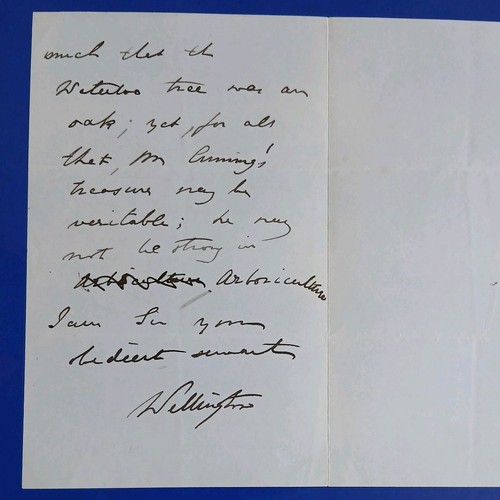 much that th
Waterloo tree was an
oak; yet, for all
that, Mr Cuming's
treasure may be
veritable; he may
not be strong in
Arboriculture Arboriculture
I am Sir your
obedient servant
Wellington